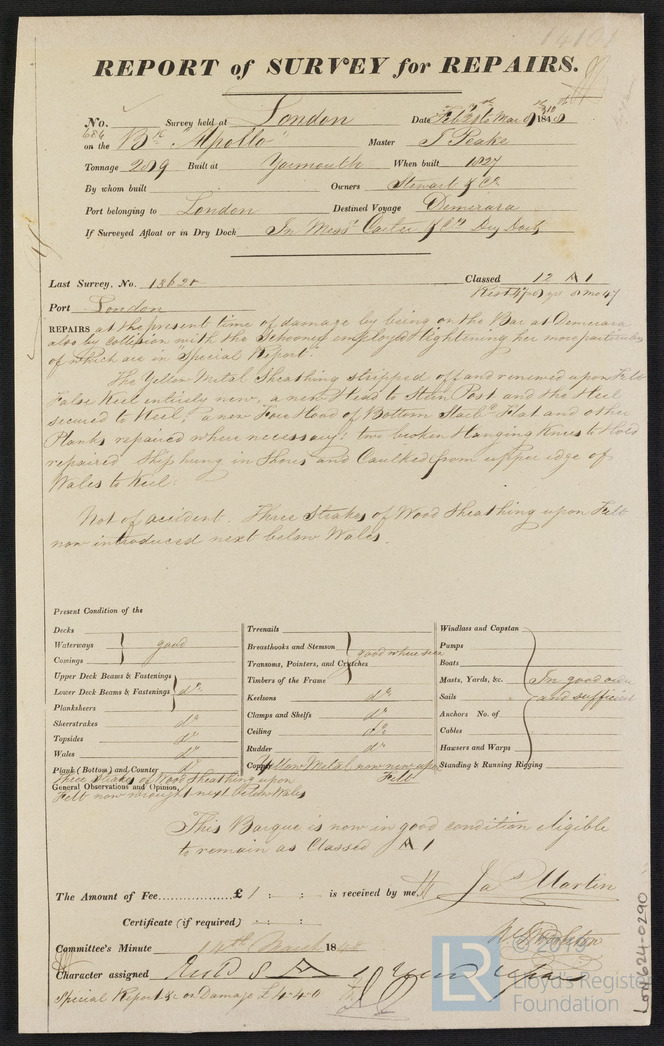 REPORT of SURVEY for REPAIRS.
No. 684 Survey held at London Date Feb 21 to Mar 1848
on the Bk "Apollo" Master J Peake
Tonnage 289 Built at Yarmouth When built 1827
By whom built Owners Stewart & Co
Port belonging to London Destined Voyage Demerara
If Surveyed Afloat or in Dry Dock In Messrs Carter & Cos Dry Dock
Last Survey, No. 13620 Classed 12 A 1
Port London
REPAIRS at the present time of damage by being on the Bar at Demerara
also by Collision with the Schooner employed lightening her more particulars
of which are in Special Report.
The Yellow Metal Sheathing stripped off and renewed upon Felt
False Keel entirely new, a new Head to Stern Post and the Heel
secured to Keel, a new Fore Hood of Bottom Starbd Flat and other
Planks repaired where necessary: two broken Hanging Knees to Hold
repaired Ship hung in Shores and Caulked from upper edge of
Wales to Keel.
Not of accident. Three Strakes of Wood Sheathing upon Felt
now introduced next below Wales.
Present Condition of the
Decks
Waterways good
Comings
Upper Deck Beams & Fastenings
Lower Deck Beams & Fastenings do
Planksheers
Sheerstrakes do
Topsides do
Wales do
Plank (Bottom) and Counter do
Treenails
Breasthooks and Stemson good where seen
Transoms, Pointers, and Crutches
Timbers of the Frame
Keelsons do
Clamps and Shelfs do
Ceiling do
Rudder do
Copper Yellow Metal now new upon Felt
Windlass and Capstan
Pumps
Boats
Masts, Yards, &c. In good order
Sails and sufficient
Anchors No. of
Cables
Hawsers and Warps
Standing & Running Rigging
Three Strakes of Wood Sheathing upon
General Observations and Opinion,
Felt now wrought next below Wales
This Barque is now in good condition eligible
to remain as Classed A 1
The Amount of Fee £ 1 : : is received by me, Jas Martin
Certificate (if required) : :
Committee's Minute 14th March 1848
Character assigned A 1
Special Report &c on Damage £ 4-4-0
© 2020
LR
Lloyd's Register
Foundation
LON 624-0290